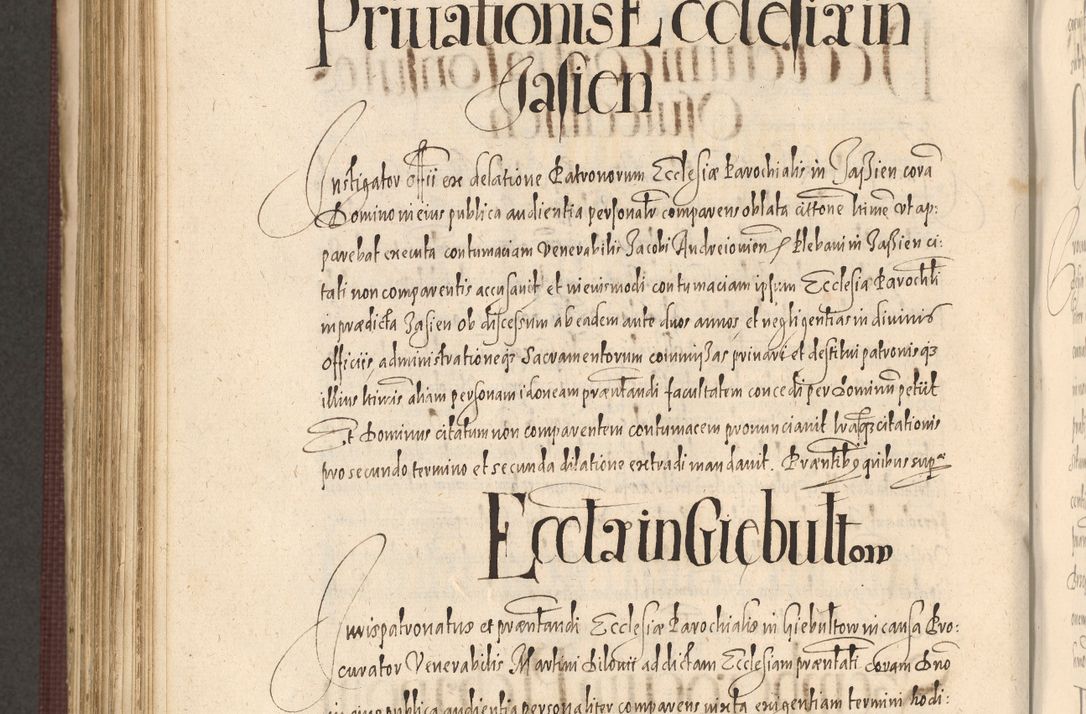 Priuationis Ecclesiæ in
Jasien
Instigator offii ex delatione Patronorum Ecclesiæ Parochialis in Jassien corā
Domino in eius publica audientia personalr comparens oblata cittone himē vt ap:
parebat executa contumaciam Venerabilis Jacobi Andreiouien Plebani in Jassien ci:
tati non comparentis accusauit et in eiusmodi contumaciam ipsum Ecclesia Parochli
in prædicta Jasien ob discessum ab eadem ante duos annos et negligentias in diuinis
Officiis, administrationeqз Sacramentorum commissas priuari et destitui patronisqз
illius himōi aliam personam idoneam præntandi facultatem concedi per Dominum petiit
Et Dominus citatum non comparentem contumacem pronunciauit citationis
pro secundo termino et secunda dilatione extradi mandauit. Præntibq quibus supra
Eccta in Giebultow
Jurispatronatus et præntandi Ecclesiæ Parochialis in Giebultow in causa Pro:
curator Venerabilis Martini Pilouii ad dictam Ecclesiam præntati coram Dno
in eius publica audientia personaliter comparens iuxta exigentiam termini hodi: